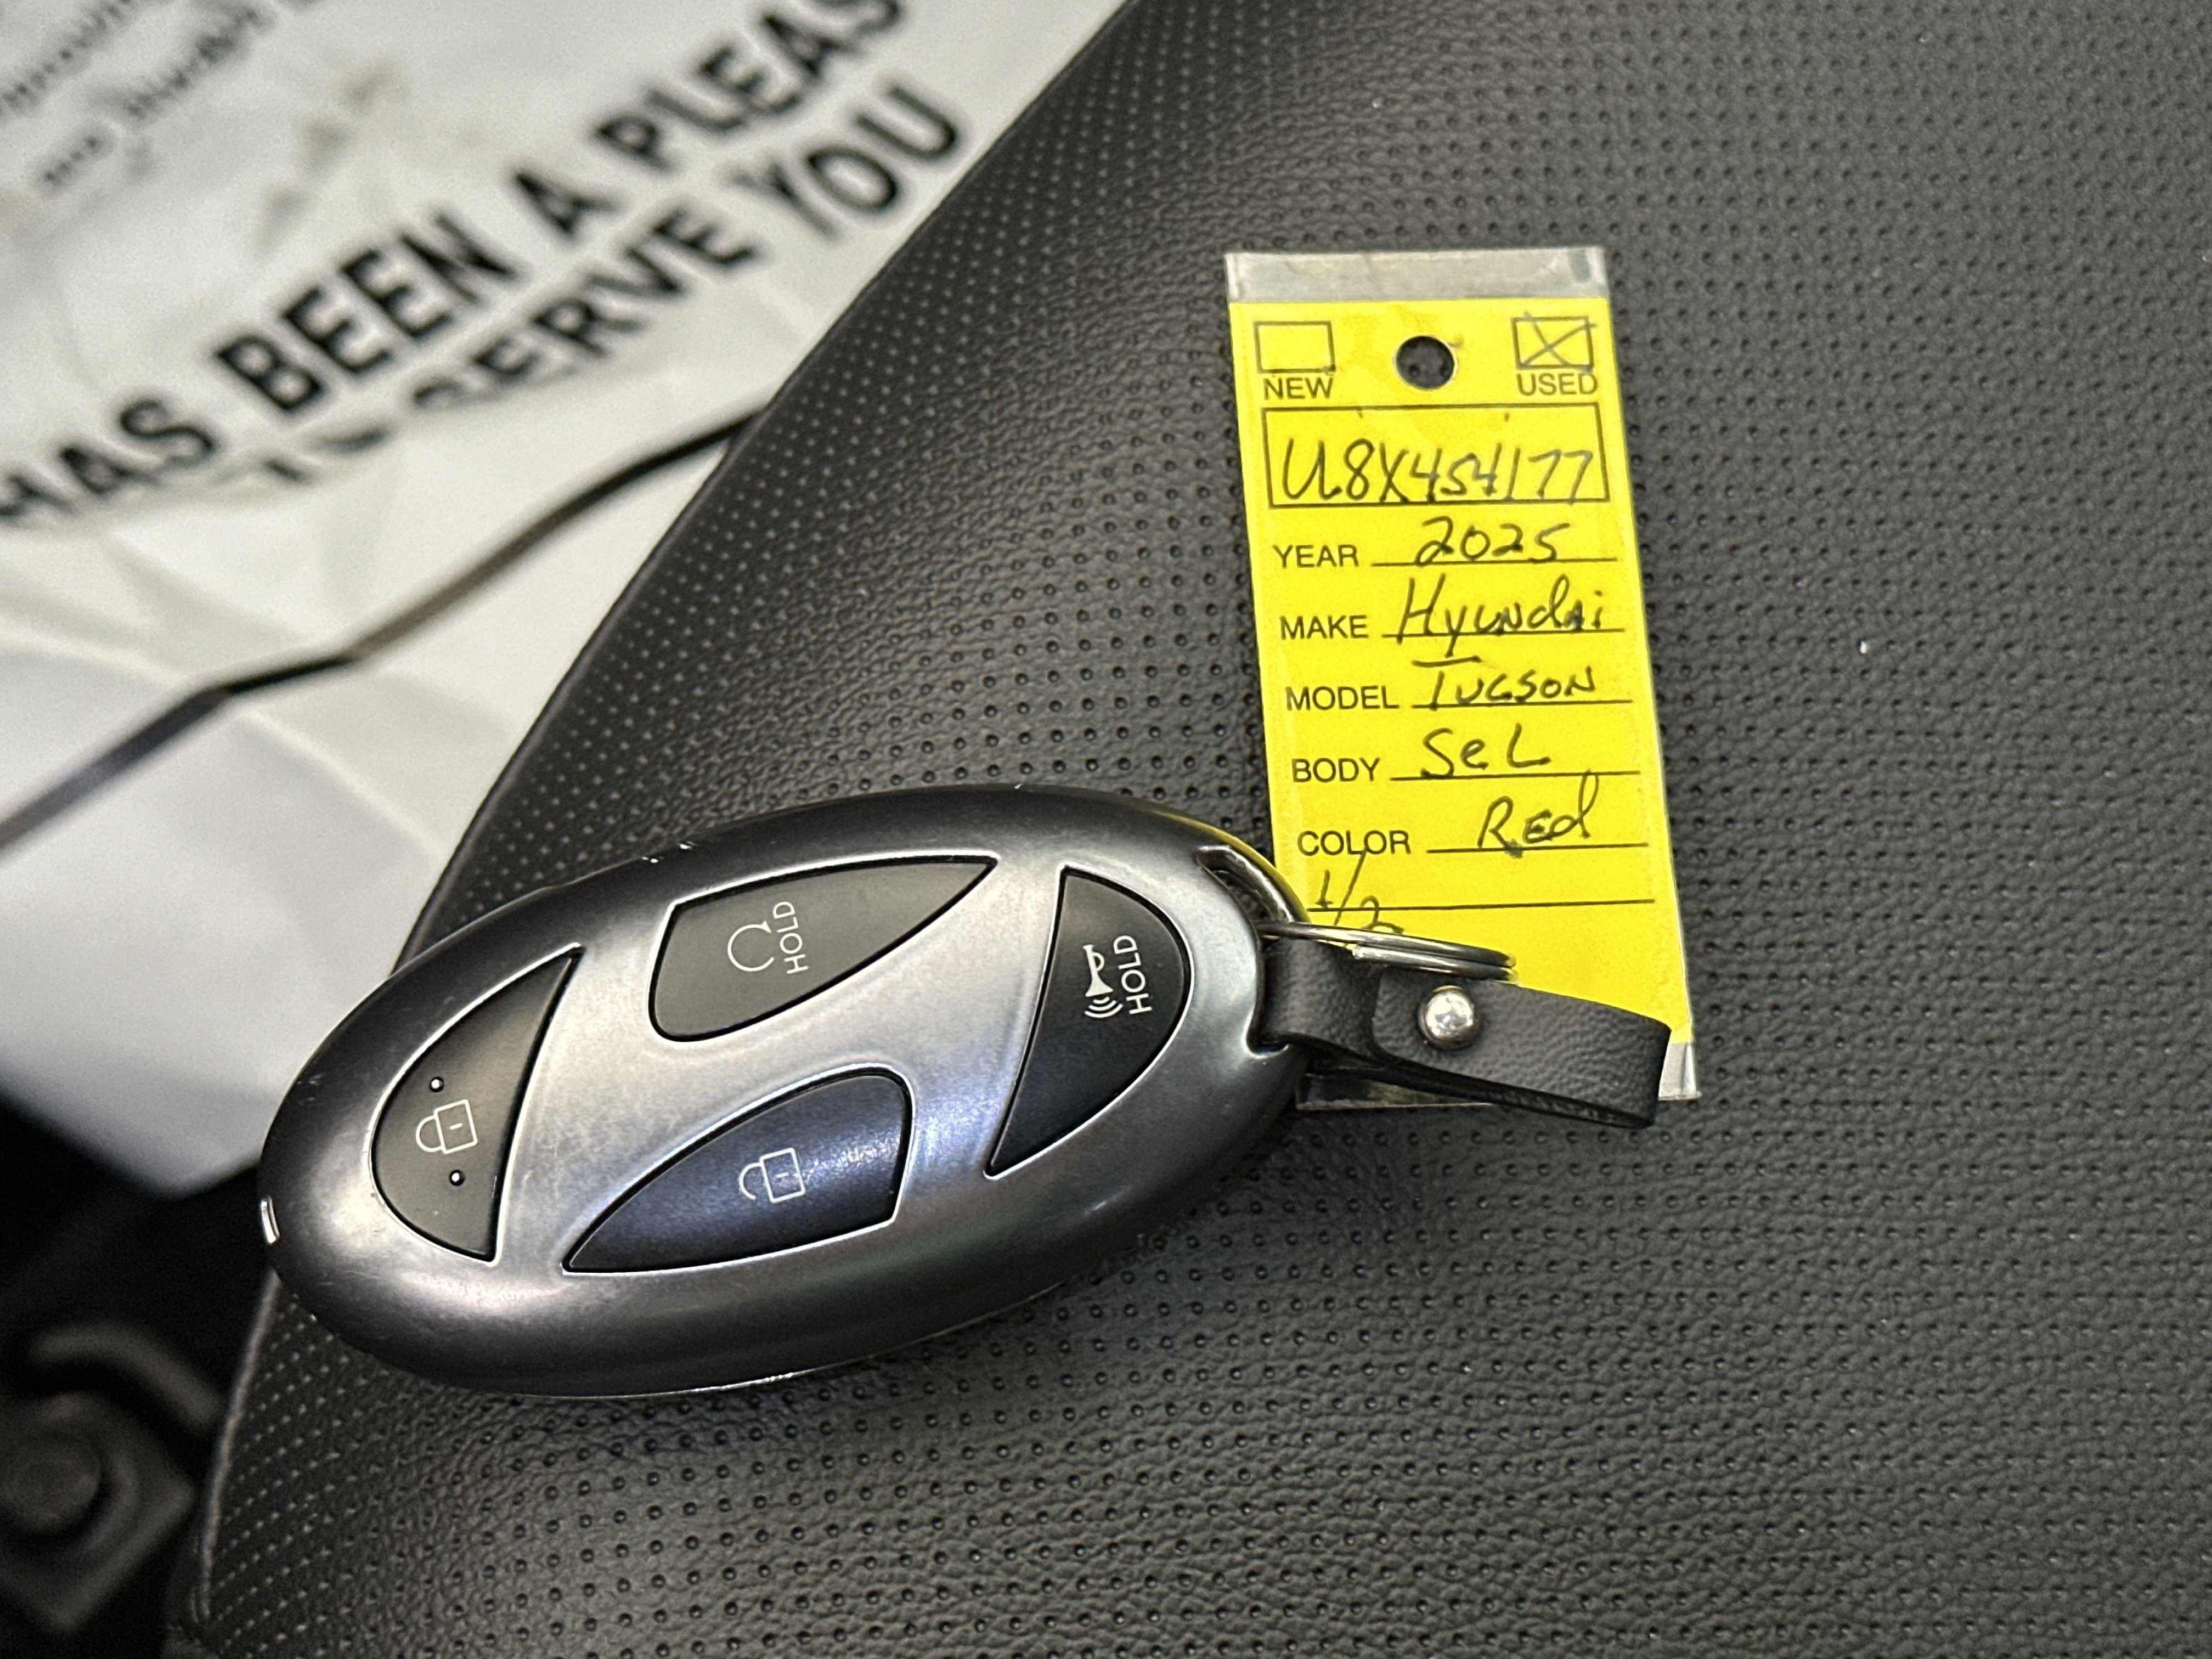 HAS BEEN A PLEAS
TO SERVE YOU
NEW USED
U8X454177
YEAR 2025
MAKE Hyundai
MODEL Tucson
BODY SeL
COLOR Red
1/2
HOLD
HOLD